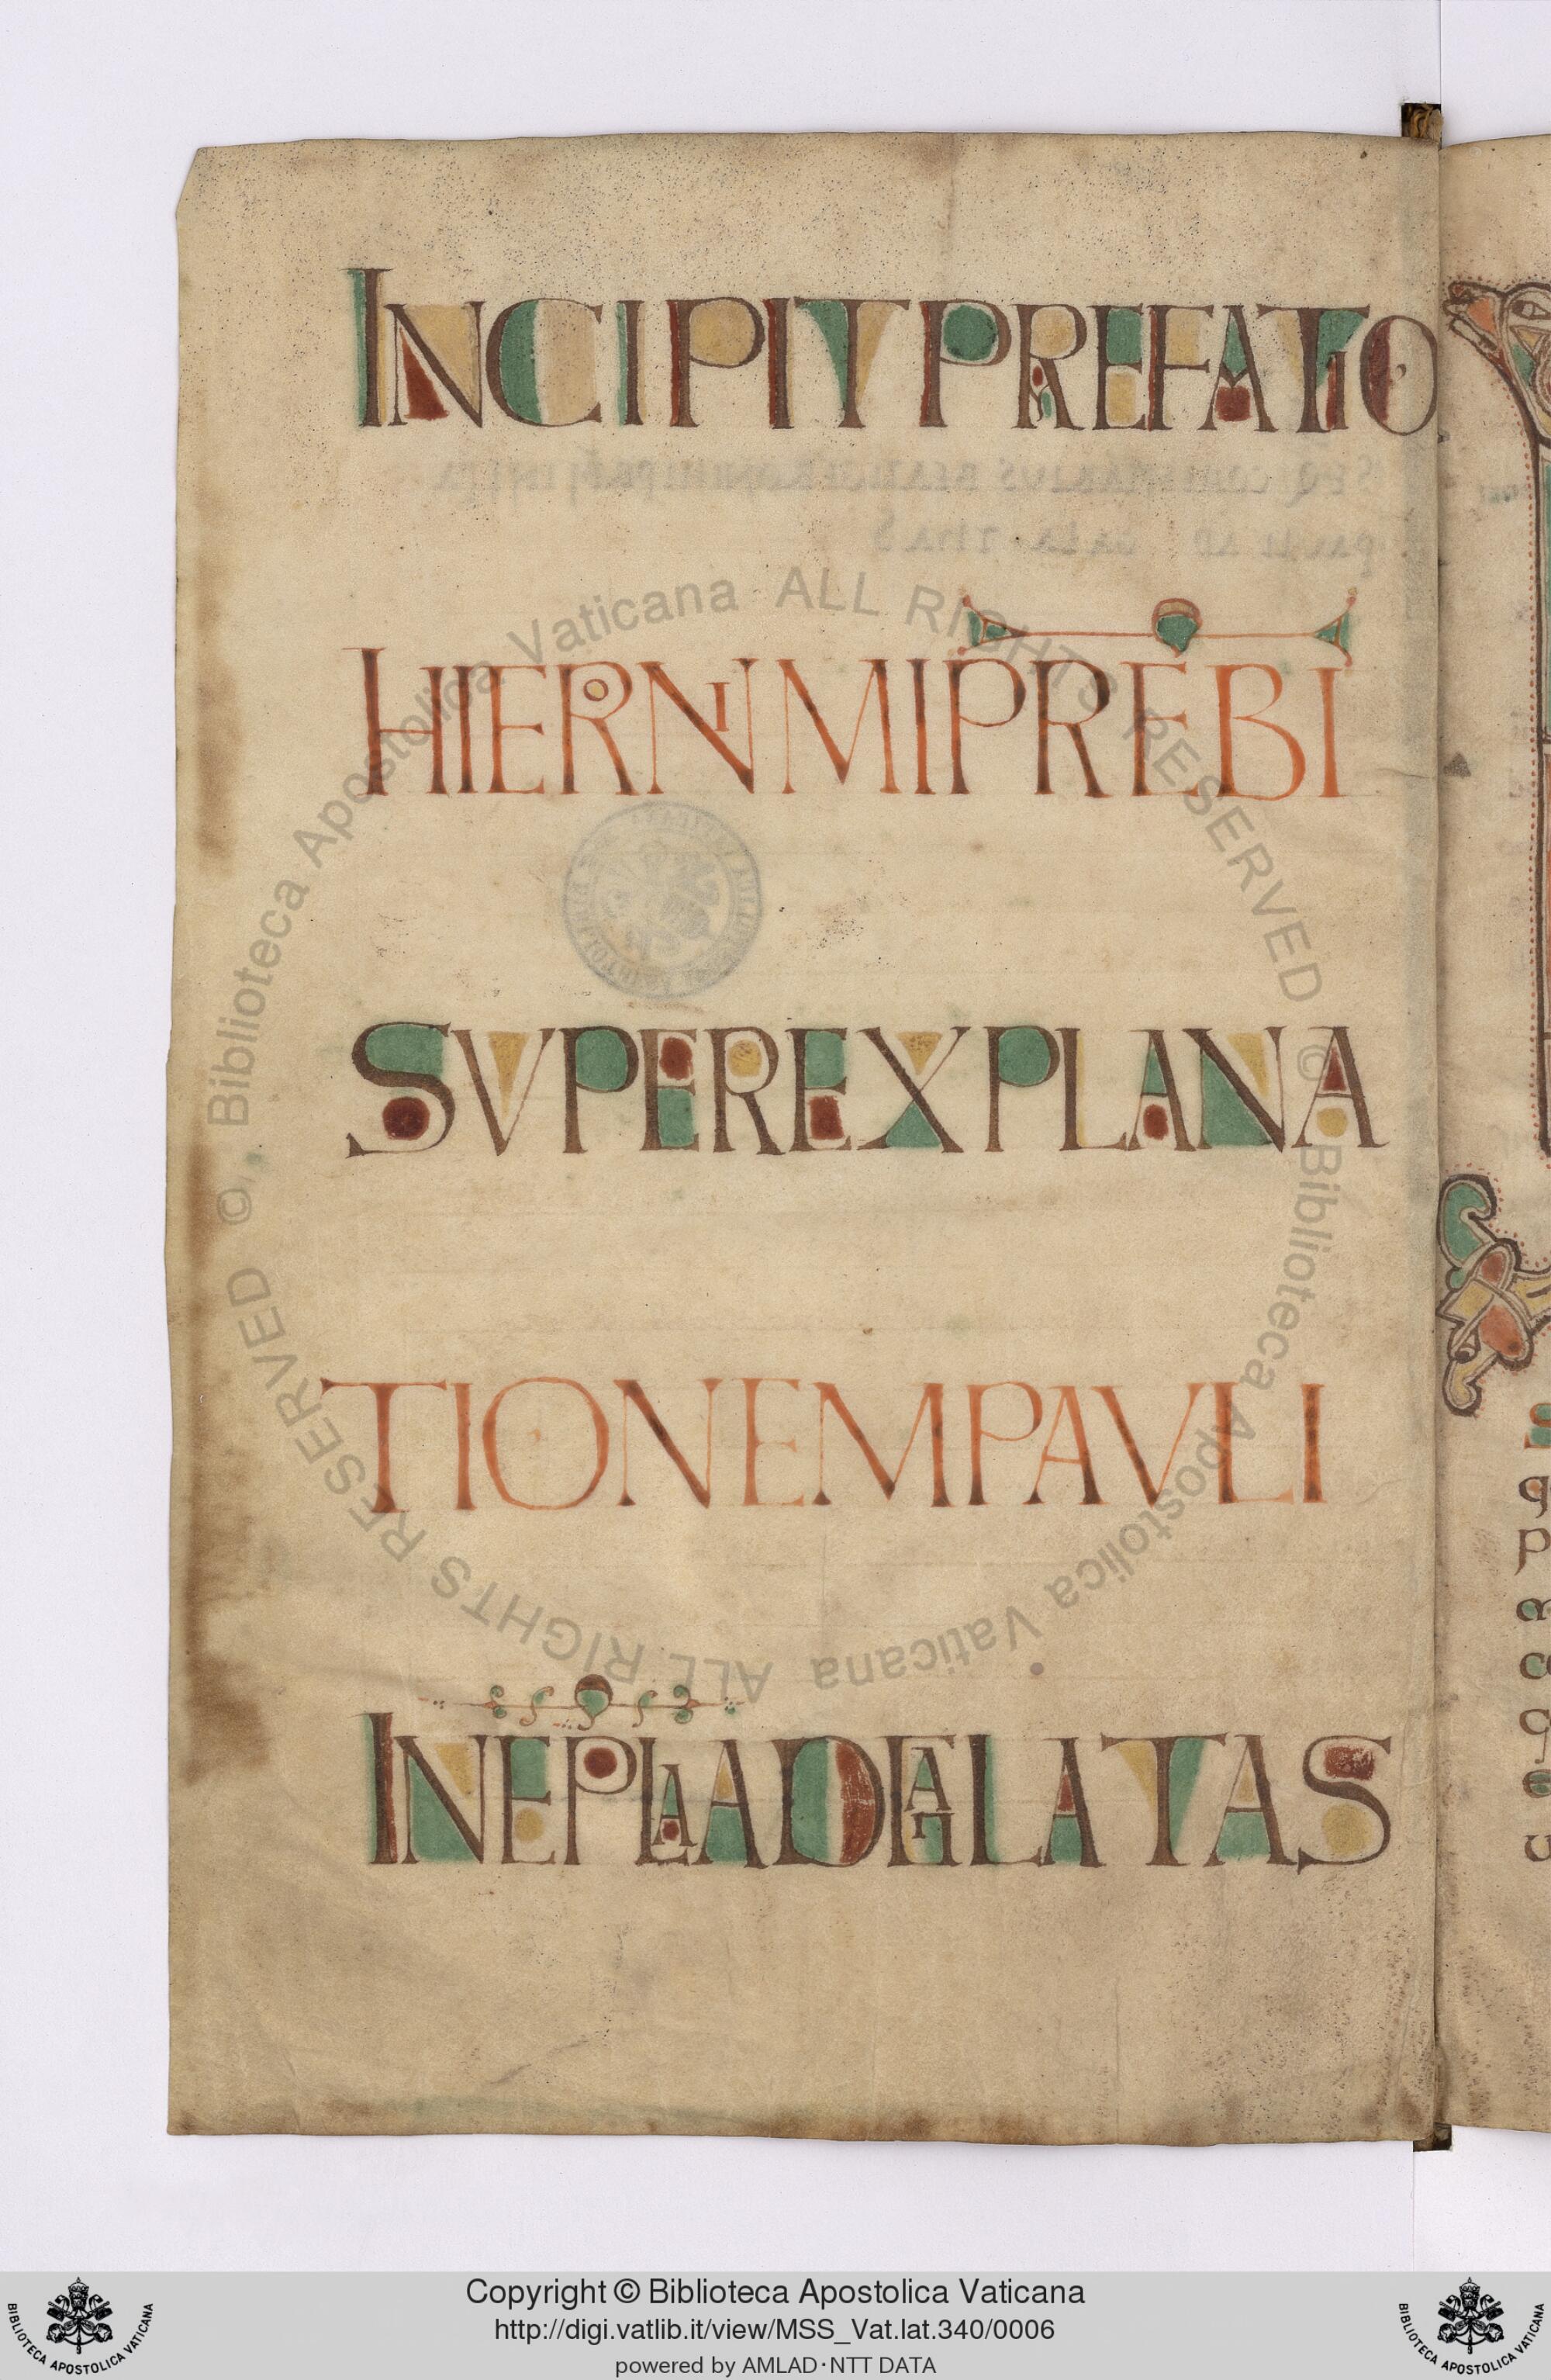 INCIPIT PREFATIO
HIERONIMI PREBI
SVPER EXPLANA
TIONEM PAVLI
IN EPLA AD GALATAS
ALL RIGHTS RESERVED © Biblioteca Apostolica Vaticana ALL RIGHTS RESERVED © Biblioteca Apostolica Vaticana
Copyright © Biblioteca Apostolica Vaticana
http://digi.vatlib.it/view/MSS_Vat.lat.340/0006
powered by AMLAD·NTT DATA
BIBLIOTECA APOSTOLICA VATICANA
BIBLIOTECA APOSTOLICA VATICANA